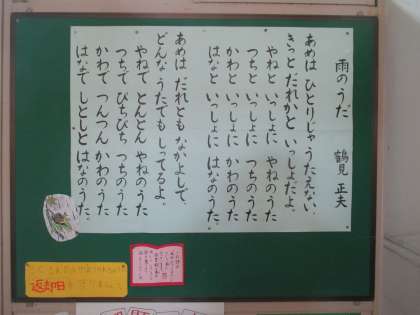 雨のうた
鶴見 正夫
あめは ひとりじゃ うたえない、
きっと だれかと いっしょだよ。
やねと いっしょに やねのうた
つちと いっしょに つちのうた
かわと いっしょに かわのうた
はなと いっしょに はなのうた。
あめは だれとも なかよしで、
どんな うたでも しってるよ。
やねで とんとん やねのうた
つちで ぴちぴち つちのうた
かわで つんつん かわのうた
はなで しとしと はなのうた。
返却日